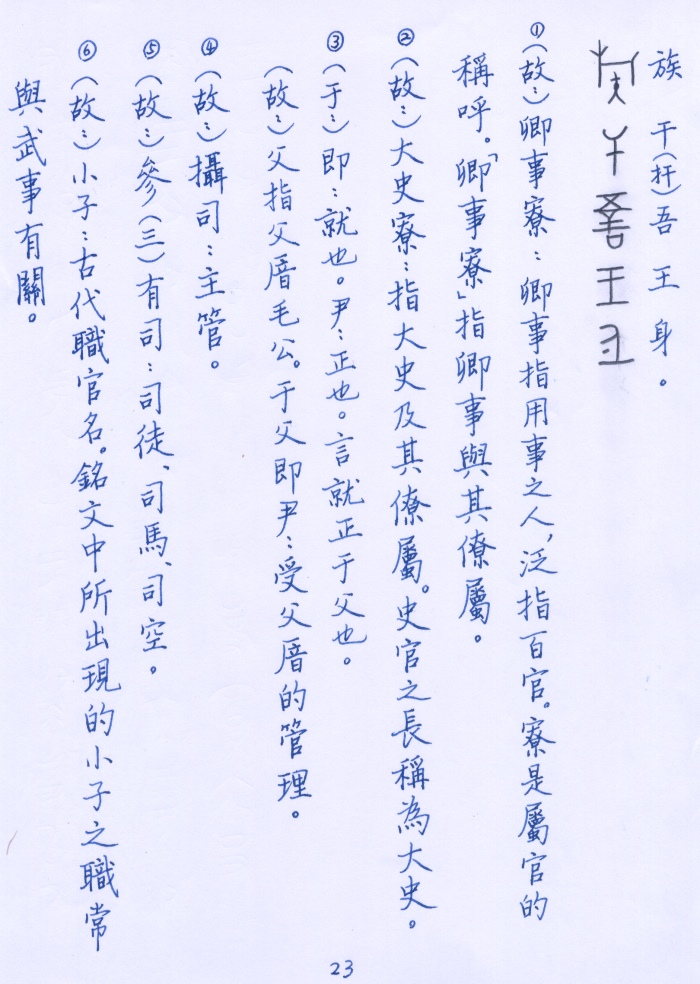 族干(扞)吾王身。
①(故:)卿事寮:卿事指用事之人,泛指百官。寮是屬官的
稱呼。「卿事寮」指卿事與其僚屬。
②(故:)大史寮:指大史及其僚屬。史官之長稱為大史。
③(于:)即:就也。尹:正也。言就正于父也。
(故:)父指父厝毛公。于父即尹:受父厝的管理。
④(故:)攝司:主管。
⑤(故:)參(三)有司:司徒、司馬、司空。
⑥(故:)小子:古代職官名。銘文中所出現的小子之職常
與武事有關。
23